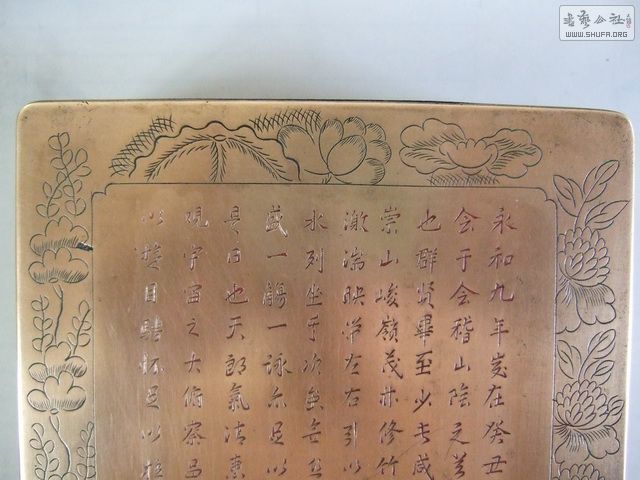 永和九年岁在癸丑
会于会稽山陰之
也群贤畢至少长咸
崇山峻嶺茂林修竹
激湍映带左右引以
水列坐于次虽无丝
盛一觴一詠亦足以
是日也天郎氣清惠
观宇宙之大俯察品
以遊目骋怀足以极
书艺公社
WWW.SHUFA.ORG